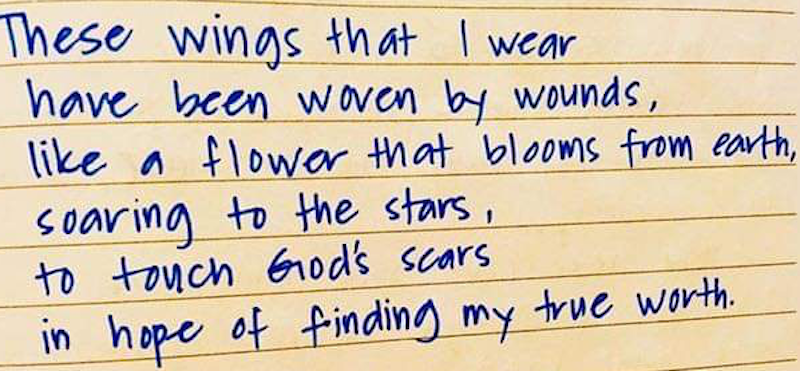 These wings that I wear
have been woven by wounds,
like a flower that blooms from earth,
soaring to the stars,
to touch God's scars
in hope of finding my true worth.